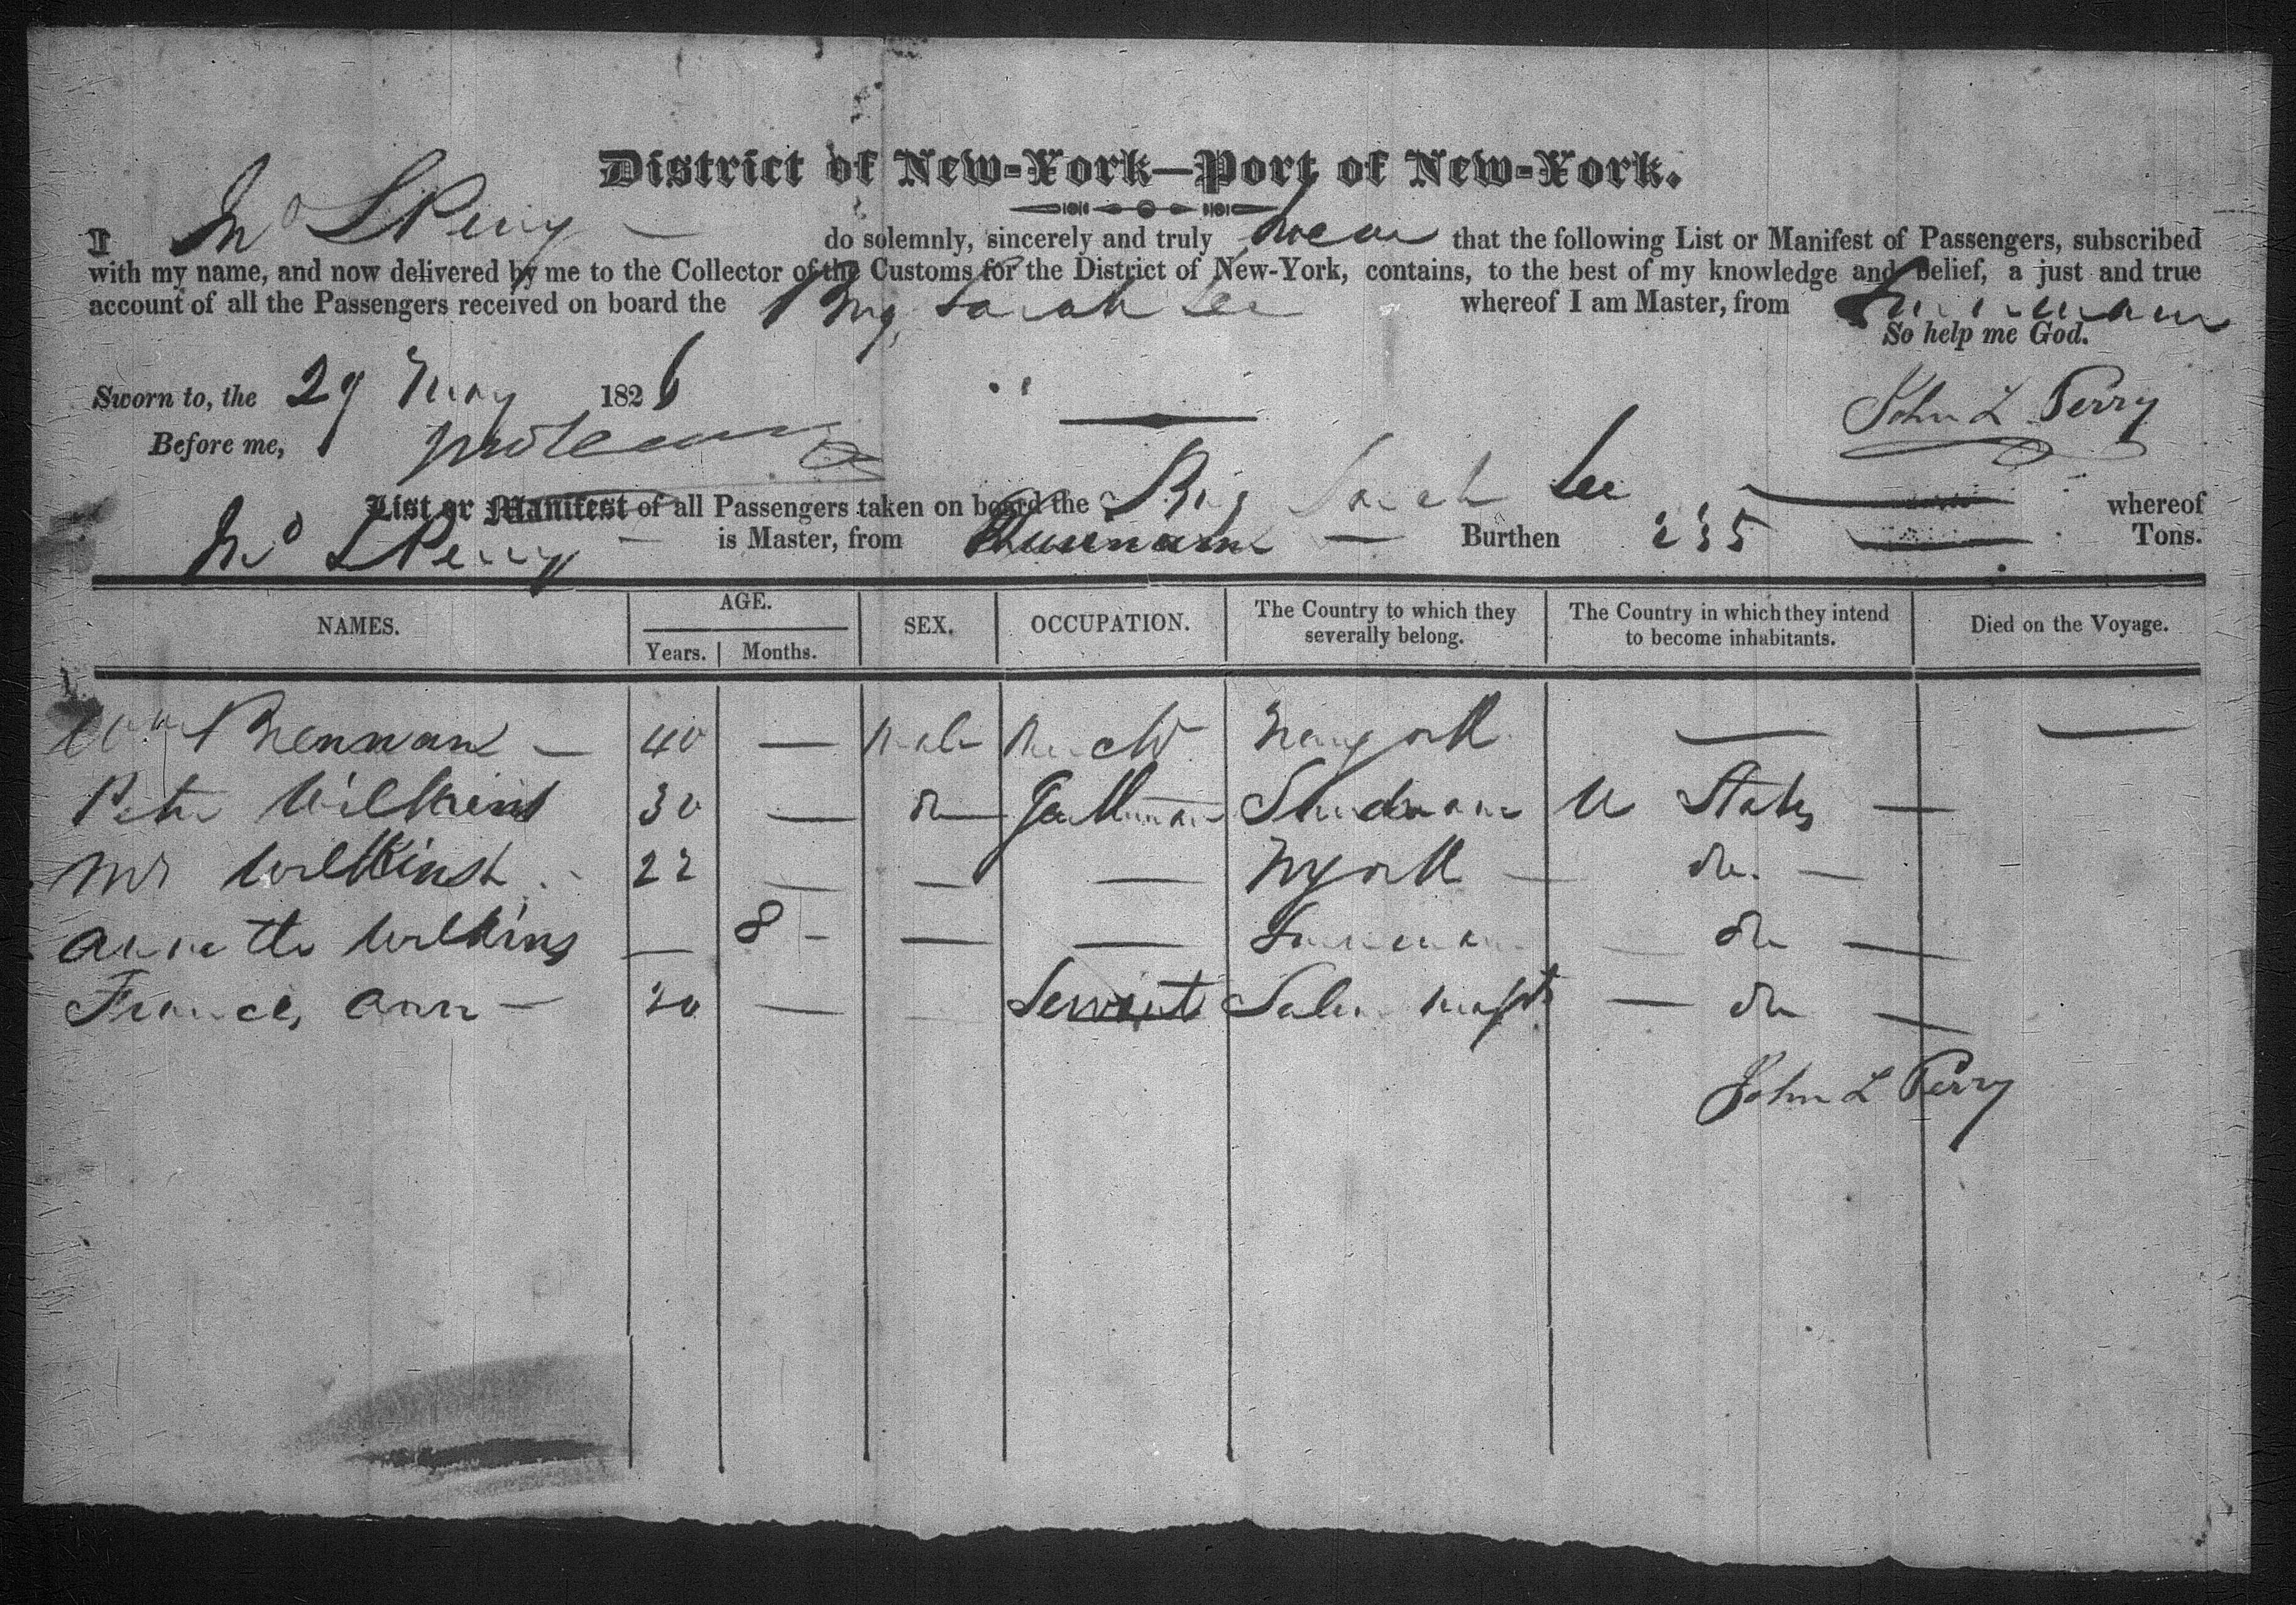 District of New-York—Port of New-York.
I Jno L Perry — do solemnly, sincerely and truly swear that the following List or Manifest of Passengers, subscribed
with my name, and now delivered by me to the Collector of the Customs for the District of New-York, contains, to the best of my knowledge and belief, a just and true
account of all the Passengers received on board the Brig Sarah Lee whereof I am Master, from Surinam
So help me God.
Sworn to, the 29 May 1826
John L Perry
Before me,
List or Manifest of all Passengers taken on board the Brig Sarah Lee whereof
Jno L Perry — is Master, from Surinam — Burthen 235 Tons.
NAMES. AGE. SEX. OCCUPATION. The Country to which they severally belong. The Country in which they intend to become inhabitants. Died on the Voyage.
Years. Months.
Wm Brennan — 40 — Male Mercht Newyork — —
Peter Wilkins 30 — do Gentleman U States —
Mrs Wilkins 22 — — — NYork — do. —
Annette Wilkins — 8 — — — Surinam do —
Frances Ann — 20 — Servant Salem Masts — do —
John L Perry